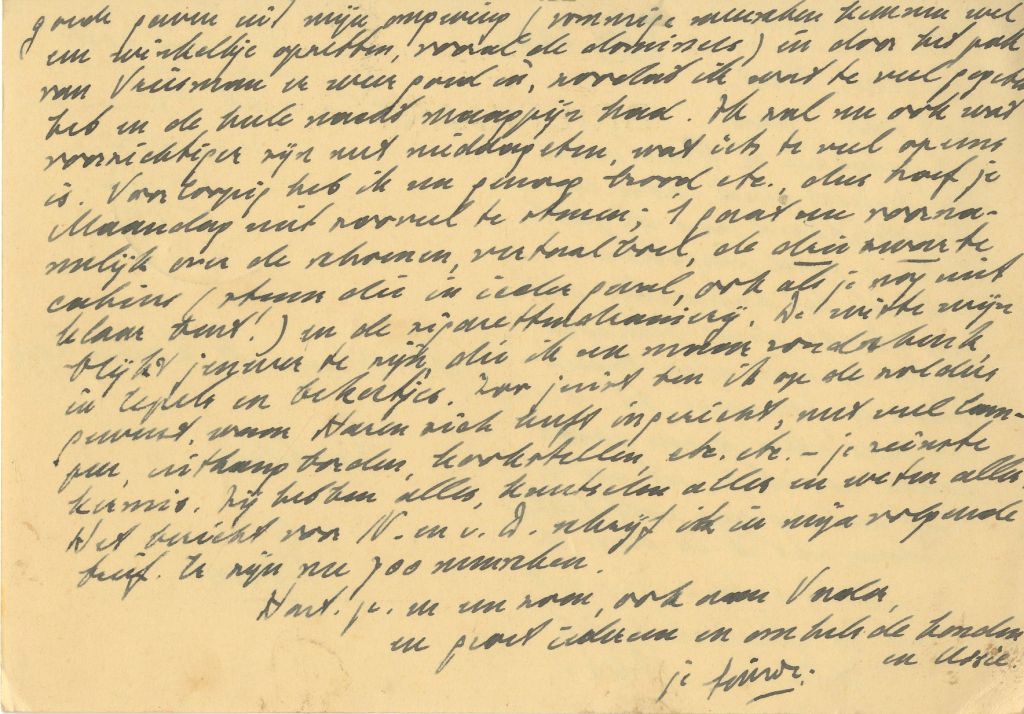 goede gaven uit mijn omgeving (sommige menschen kunnen wel
een winkeltje opzetten, vooral de dominees) en door het pak
van Vriesman er weer goed in, zoodat ik wat te veel gegeten
heb en de heele nacht maagpijn had. Ik zal nu ook wat
voorzichtiger zijn met middageten, wat iets te veel opeens
is. Voorloopig heb ik nu genoeg brood etc., dus hoef je
Maandag niet zooveel te sturen; 't gaat nu voorna-
melijk over de schoenen, vertaalboel, de drie zwarte
cahiers (stuur die in ieder geval, ook als je nog niet
klaar bent!) en de sigaretten. De witte wijn
blijkt jenever te zijn, die ik nu maar
in lepels en bekertjes. Zoo juist ben ik op de zolder
geweest, waar Haren zich heeft ingericht, met veel lam-
pen, uithangborden, kookstellen, etc. etc. – je reinste
kermis. Zij hebben alles, knutselen alles en weten alles.
Het bericht voor N. en v. D. schrijf ik in mijn volgende
brief. Er zijn nu 700 menschen.
Hart. gr. en een zoen, ook aan Vader,
en groet iedereen en omhels de honden
en
je